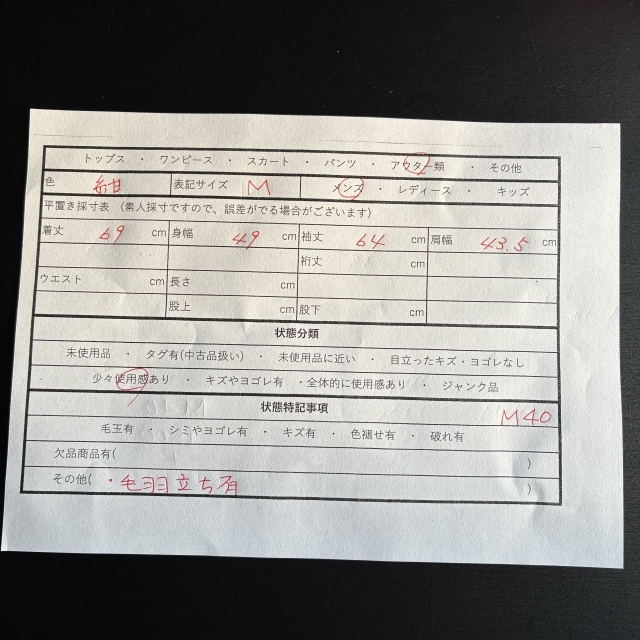 トップス ・ ワンピース ・ スカート ・ パンツ ・ アウター類 ・ その他
色 紺 表記サイズ M メンズ ・ レディース ・ キッズ
平置き採寸表 (素人採寸ですので、誤差がでる場合がございます)
着丈 69 cm 身幅 49 cm 袖丈 64 cm 肩幅 43.5 cm
裄丈 cm
ウエスト cm 長さ cm
股上 cm 股下 cm
状態分類
未使用品 ・ タグ有(中古品扱い) ・ 未使用品に近い ・ 目立ったキズ・ヨゴレなし
少々使用感あり ・ キズやヨゴレ有 ・全体的に使用感あり ・ ジャンク品
状態特記事項 M40
毛玉有 ・ シミやヨゴレ有 ・ キズ有 ・ 色褪せ有 ・ 破れ有
欠品商品有( )
その他( ・毛羽立ち有 )